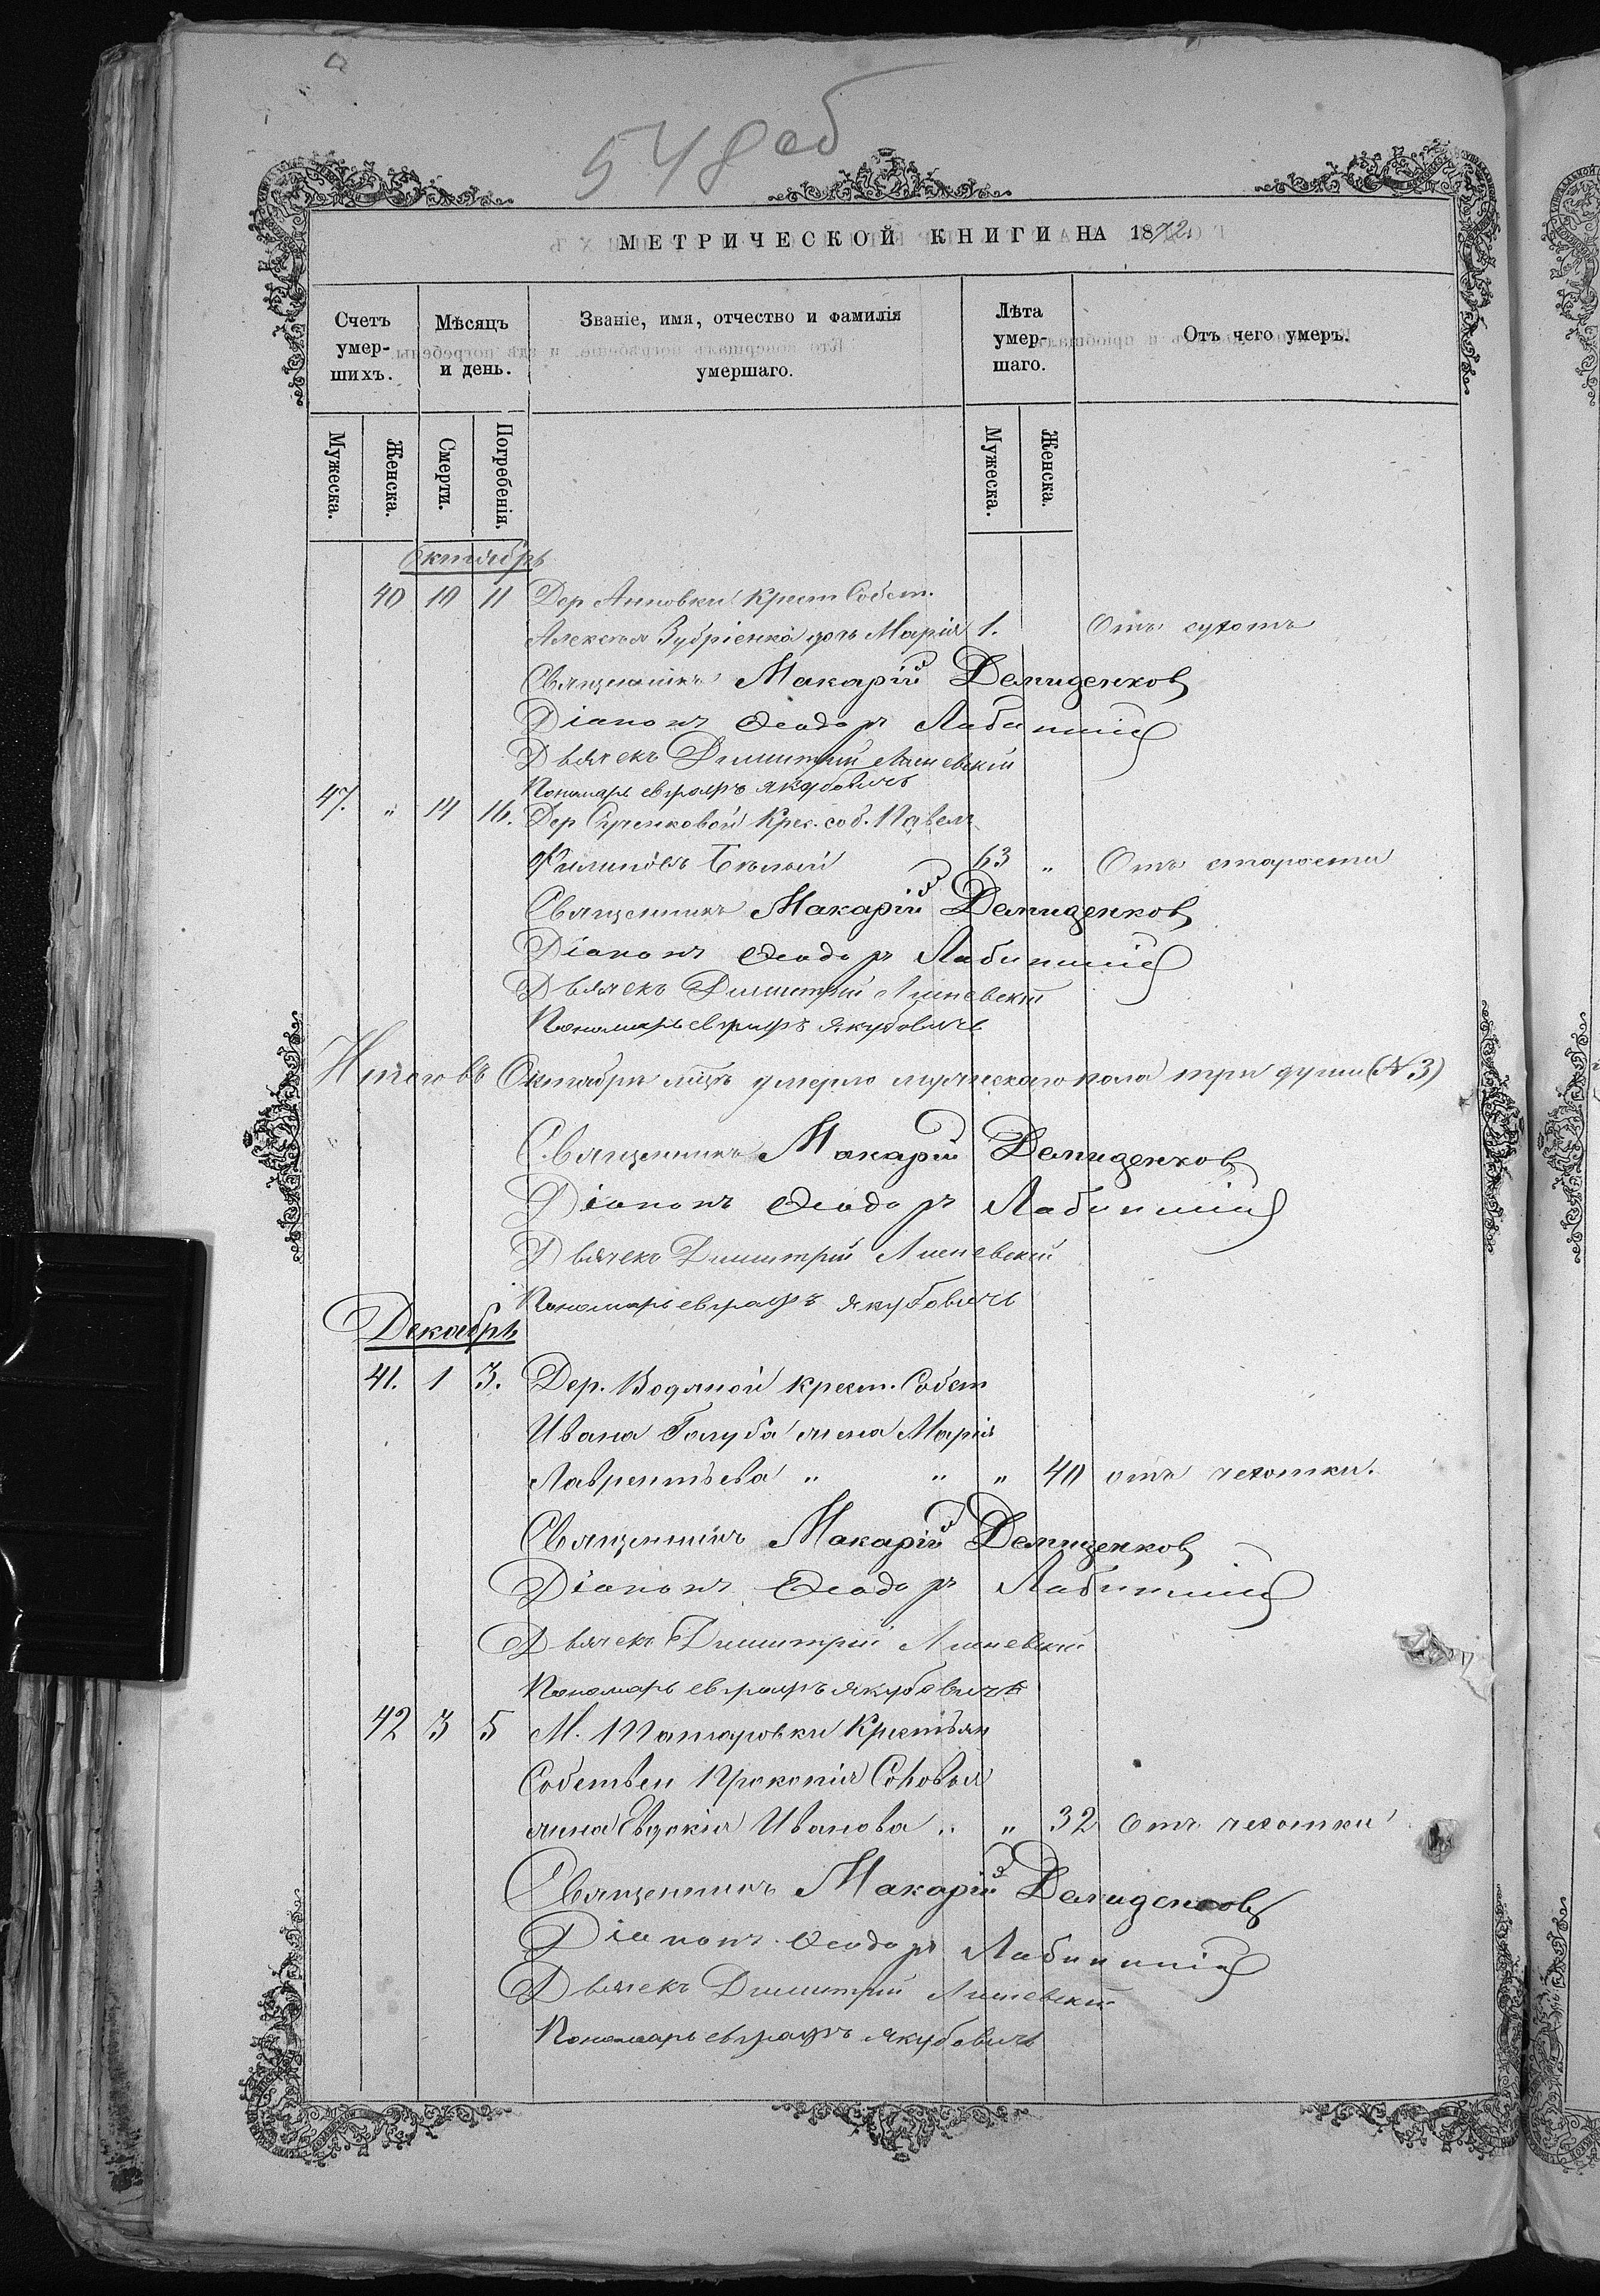 548 об
МЕТРИЧЕСКОЙ КНИГИ НА 1872.
Счетъ умер-шихъ.
Мѣсяцъ и день.
Званіе, имя, отчество и фамилія умершаго.
Лѣта умер-шаго.
Отъ чего умеръ.
Мужеска.
Женска.
Смерти.
Погребенія.
Мужеска.
Женска.
Октябрь
40 10 11 Дер Анновки Крест Собст.
Алексѣя Зубріенка дочь Марія 1. Отъ сухотъ
Священникъ Макарій Демиденков
Діаконъ Ѳеодоръ
Дьячекъ Димитрій Лисневскій
Пономарь Евграфъ Якубовичъ
47. „ 14 16. Дер Крес. соб. Павелъ
Филиповъ Бѣлый 63 „ Отъ старости
Священникъ Макарій Демиденков
Діаконъ Ѳеодоръ
Дьячекъ Димитрій Лисневскій
Пономарь Евграфъ Якубовичъ
Итого въ Октябрѣ мцѣ умерло мужескаго пола три души (№ 3)
Священникъ Макарій Демиденков
Діаконъ Ѳеодоръ
Дьячекъ Димитрій Лисневскій
Пономарь Евграфъ Якубовичъ
Декабрь
41. 1 3. Дер. Водяной крест. Собст
Ивана Голуба жена Марія
Лаврентьева „ „ „ 40 отъ чехотки.
Священникъ Макарій Демиденков
Діаконъ Ѳеодоръ
Дьячекъ Димитрій Лисневскій
Пономарь Евграфъ Якубовичъ
42 3 5 М. Крестьян
Собствен Прокопія Соловья
жена Евдокія Иванова „ „ 32 Отъ чехотки
Священникъ Макарій Демиденков
Діаконъ Ѳеодоръ
Дьячекъ Димитрій Лисневскій
Пономарь Евграфъ Якубовичъ